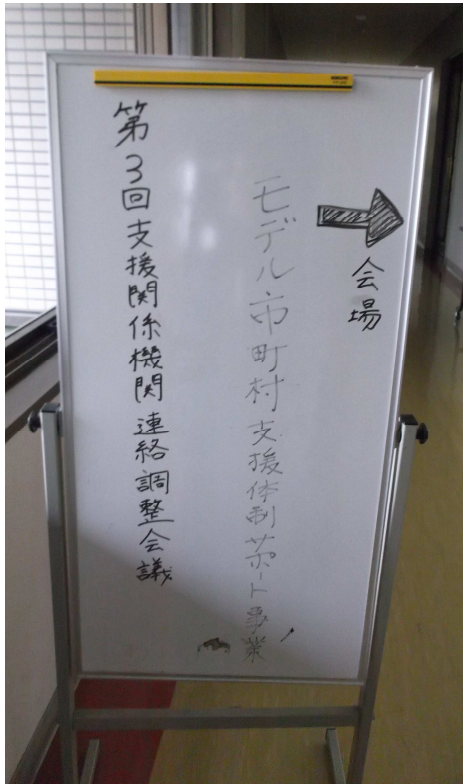 会場
モデル市町村支援体制サポート事業
第3回支援関係機関連絡調整会議